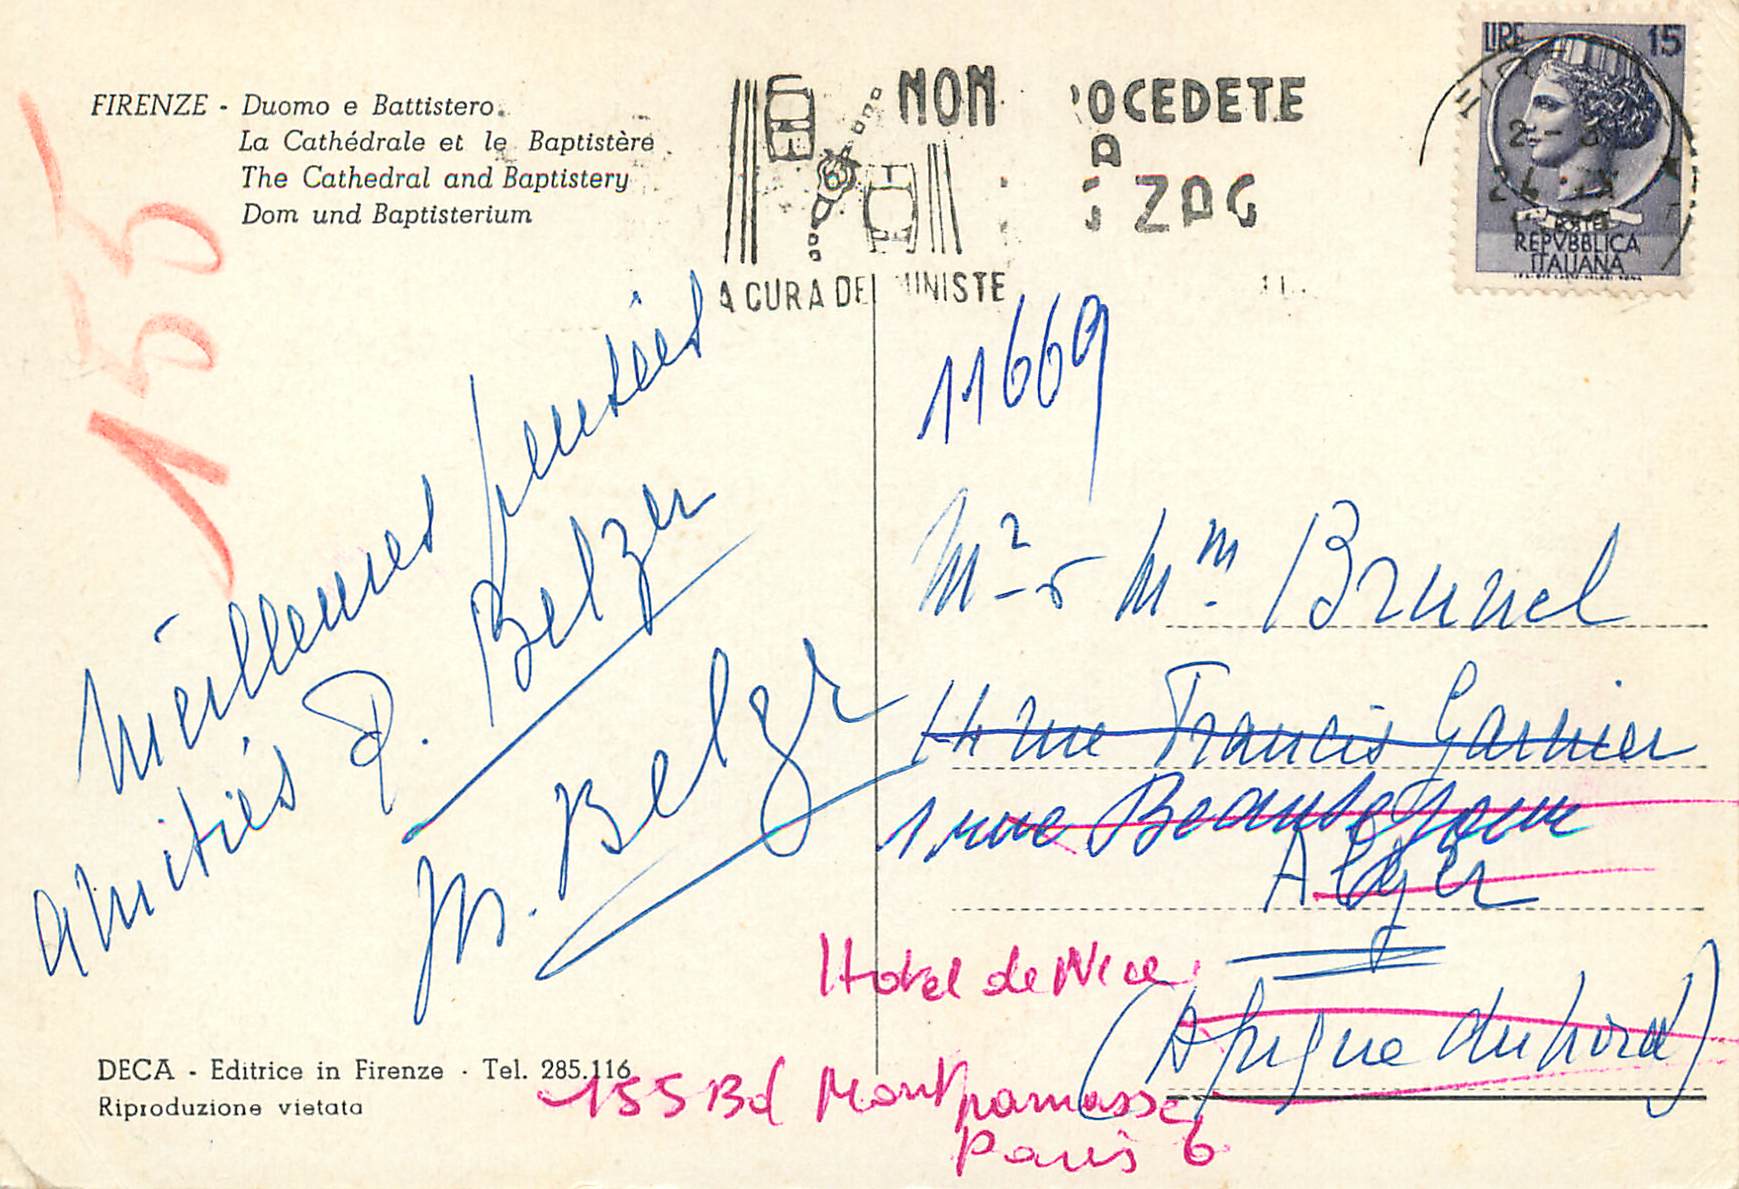 FIRENZE - Duomo e Battistero.
La Cathédrale et le Baptistère
The Cathedral and Baptistery
Dom und Baptisterium
NON OCEDETE
A
ZAG
A CURA DEL MINISTE
LIRE 15
POSTE
REPVBBLICA
ITALIANA
155
11669
Meilleures pensées
amitiés P. Belzer
M. Belzer
Mr & Mm Brunel
14 rue Francis Garnier
1 rue
Alger
(Afrique du nord)
Hotel de Nice
155 Bd Montparnasse
Paris 6
DECA - Editrice in Firenze - Tel. 285.116
Riproduzione vietata